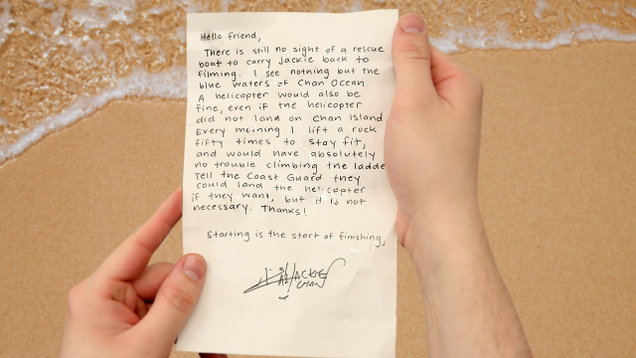 Hello friend,
There is still no sight of a rescue
boat to carry Jackie back to
filming. I see nothing but the
blue waters of Chan Ocean.
A helicopter would also be
fine, even if the helicopter
did not land on Chan Island
Every morning I lift a rock
fifty times to stay fit,
and would have absolutely
no trouble climbing the ladde
Tell the Coast Guard they
could land the helicopter
if they want, but it is not
necessary. Thanks!
Starting is the start of finishing,
JACKIE
CHAN